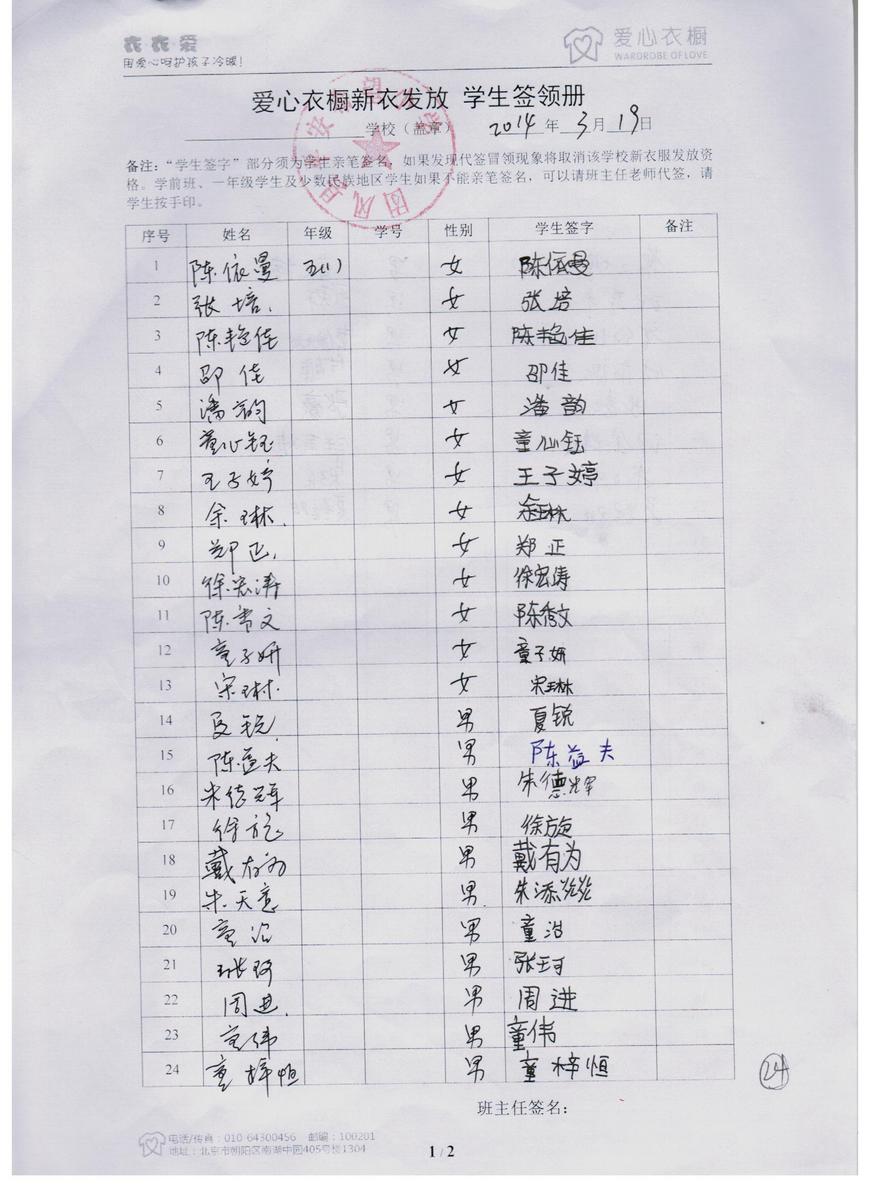 衣衣爱
用爱心呵护孩子冷暖!
爱心衣橱
WARDROBE OF LOVE
爱心衣橱新衣发放 学生签领册
学校（盖章） 2014 年 3 月 19 日
备注：“学生签字”部分须为学生亲笔签名，如果发现代签冒领现象将取消该学校新衣服发放资
格。学前班、一年级学生及少数民族地区学生如果不能亲笔签名，可以请班主任老师代签，请
学生按手印。
序号 姓名 年级 学号 性别 学生签字 备注
1 陈依曼 五(1) 女 陈依曼
2 张培 女 张培
3 陈艳佳 女 陈艳佳
4 邵佳 女 邵佳
5 潘韵 女 潘韵
6 童心钰 女 童心钰
7 王子婷 女 王子婷
8 余琳 女 余琳
9 郑正 女 郑正
10 徐宏涛 女 徐宏涛
11 女 陈秀文
12 童子妍 女 童子妍
13 宋琳 女 宋琳
14 夏锐 男 夏锐
15 陈益夫 男 陈益夫
16 朱德辉 男 朱德辉
17 徐旋 男 徐旋
18 戴有为 男 戴有为
19 朱天意 男
20 男 童浩
21 张珂 男 张珂
22 周进 男 周进
23 童伟 男 童伟
24 童梓恒 男 童梓恒
24
班主任签名：
电话/传真：010-64300456 邮编：100201
地址：北京市朝阳区南湖中园405号楼1304
1 / 2